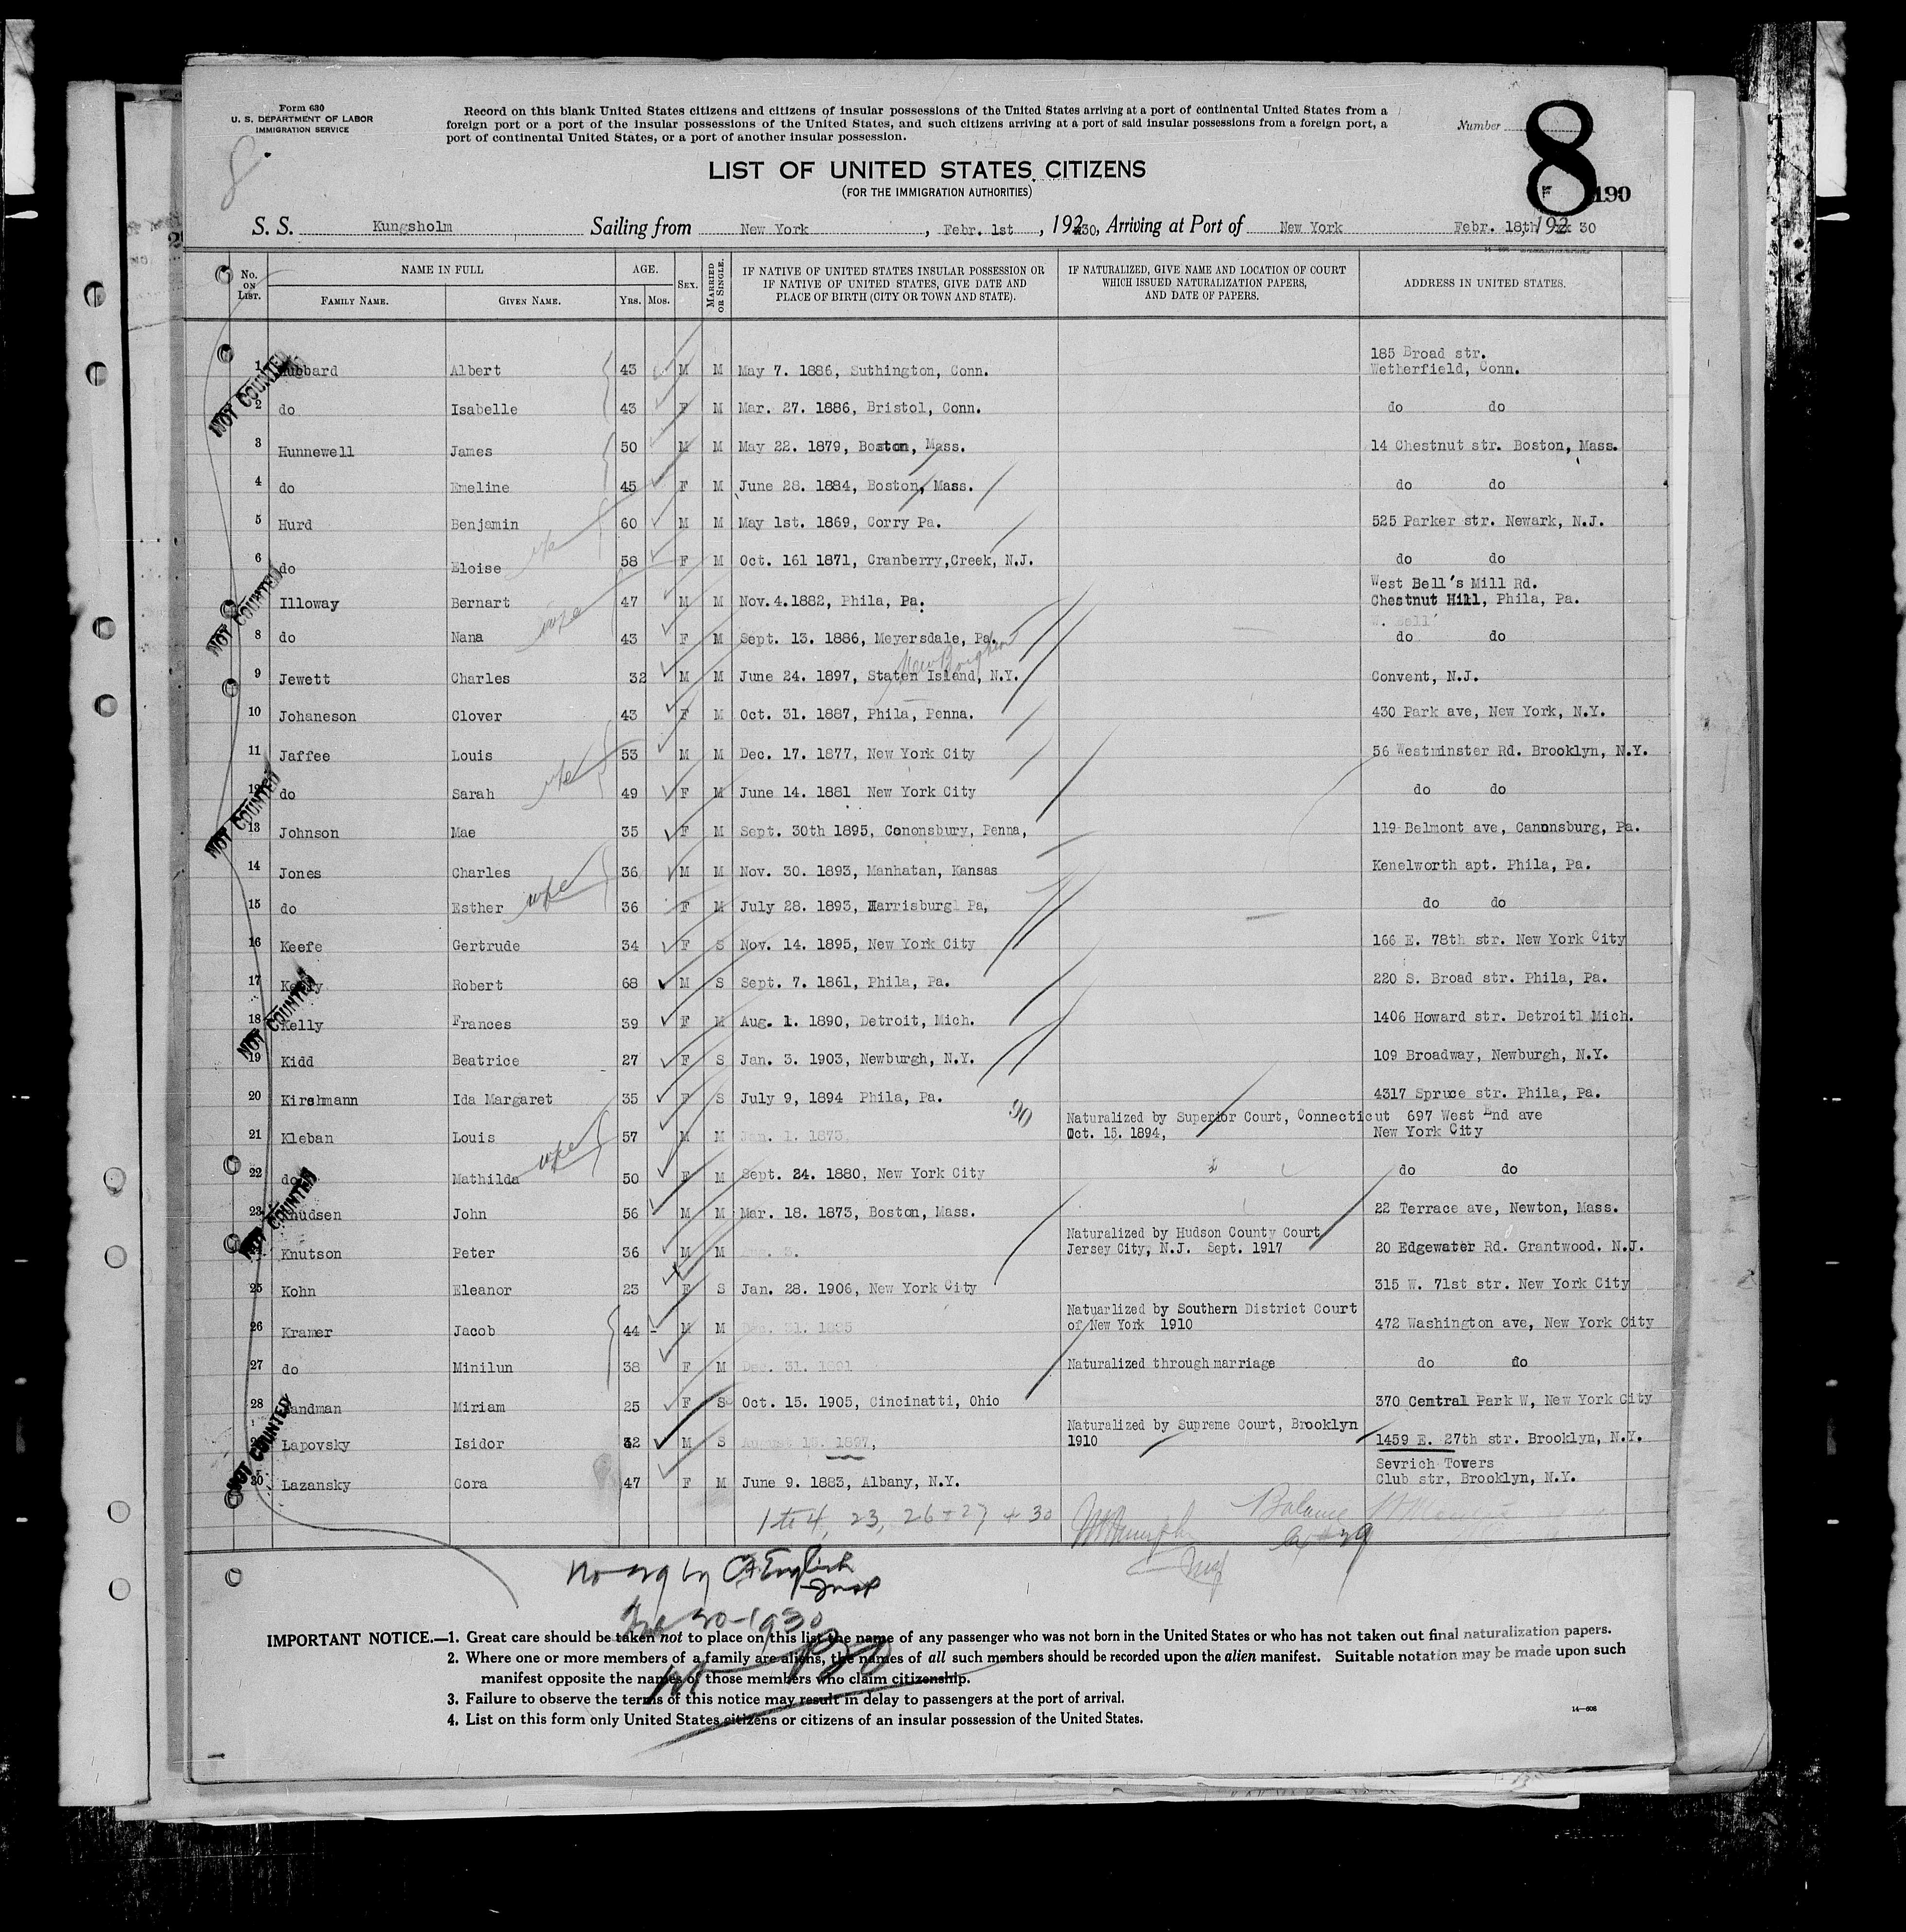 Form 630
U. S. DEPARTMENT OF LABOR
IMMIGRATION SERVICE
Record on this blank United States citizens and citizens of insular possessions of the United States arriving at a port of continental United States from a
foreign port or a port of the insular possessions of the United States, and such citizens arriving at a port of said insular possessions from a foreign port, a
port of continental United States, or a port of another insular possession.
Number 8
8
190
LIST OF UNITED STATES CITIZENS
(FOR THE IMMIGRATION AUTHORITIES)
S. S. Kungsholm Sailing from New York, Febr. 1st, 19230, Arriving at Port of New York Febr. 18th, 192 30
No. ON LIST. NAME IN FULL FAMILY NAME. GIVEN NAME. AGE. YRS. MOS. SEX. MARRIED OR SINGLE. IF NATIVE OF UNITED STATES INSULAR POSSESSION OR IF NATIVE OF UNITED STATES, GIVE DATE AND PLACE OF BIRTH (CITY OR TOWN AND STATE). IF NATURALIZED, GIVE NAME AND LOCATION OF COURT WHICH ISSUED NATURALIZATION PAPERS, AND DATE OF PAPERS. ADDRESS IN UNITED STATES.
185 Broad str.
1 Hubbard Albert 43 M M May 7. 1886, Suthington, Conn. Wetherfield, Conn.
2 do Isabelle 43 F M Mar. 27. 1886, Bristol, Conn. do do
3 Hunnewell James 50 M M May 22. 1879, Boston, Mass. 14 Chestnut str. Boston, Mass.
4 do Emeline 45 F M June 28. 1884, Boston, Mass. do do
5 Hurd Benjamin 60 M M May 1st. 1869, Corry Pa. 525 Parker str. Newark, N.J.
6 do Eloise wife 58 F M Oct. 161 1871, Cranberry,Creek, N.J. do do
West Bell's Mill Rd.
Illoway Bernart 47 M M Nov.4.1882, Phila, Pa. Chestnut Hill, Phila, Pa.
W. Bell'
8 do Nana wife 43 F M Sept. 13. 1886, Meyersdale, Pa. do do
New Brighton
9 Jewett Charles 32 M M June 24. 1897, Staten Island, N.Y. Convent, N.J.
10 Johaneson Clover 43 F M Oct. 31. 1887, Phila, Penna. 430 Park ave, New York, N.Y.
11 Jaffee Louis 53 M M Dec. 17. 1877, New York City 56 Westminster Rd. Brooklyn, N.Y.
12 do Sarah wife 49 F M June 14. 1881 New York City do do
13 Johnson Mae 35 F M Sept. 30th 1895, Cononsbury, Penna, 119 Belmont ave, Canonsburg, Pa.
14 Jones Charles 36 M M Nov. 30. 1893, Manhatan, Kansas Kenelworth apt. Phila, Pa.
15 do Esther wife 36 F M July 28. 1893, Harrisburgl Pa, do do
16 Keefe Gertrude 34 F S Nov. 14. 1895, New York City 166 E. 78th str. New York City
17 Robert 68 M S Sept. 7. 1861, Phila, Pa. 220 S. Broad str. Phila, Pa.
18 Kelly Frances 39 F M Aug. 1. 1890, Detroit, Mich. 1406 Howard str. Detroitl Mich.
19 Kidd Beatrice 27 F S Jan. 3. 1903, Newburgh, N.Y. 109 Broadway, Newburgh, N.Y.
20 Kirshmann Ida Margaret 35 F S July 9, 1894 Phila, Pa. 4317 Spruce str. Phila, Pa.
Naturalized by Superior Court, Connecticut 697 West End ave
21 Kleban Louis 57 M M Jan. 1. 1873, Oct. 15. 1894, New York City
22 do Mathilda wife 50 F M Sept. 24. 1880, New York City do do
23 Knudsen John 56 M M Mar. 18. 1873, Boston, Mass. 22 Terrace ave, Newton, Mass.
Naturalized by Hudson County Court
Knutson Peter 36 M M Jersey City, N.J. Sept. 1917 20 Edgewater Rd. Grantwood. N.J.
25 Kohn Eleanor 23 F S Jan. 28. 1906, New York City 315 W. 71st str. New York City
Natuarlized by Southern District Court
26 Kramer Jacob 44 M M Dec. 31. 1885 of New York 1910 472 Washington ave, New York City
27 do Minilun 38 F M Dec. 31. 1891 Naturalized through marriage do do
28 Landman Miriam 25 F S Oct. 15. 1905, Cincinatti, Ohio 370 Central Park W, New York City
Naturalized by Supreme Court, Brooklyn
Lapovsky Isidor 32 M S August 15. 1897, 1910 1459 E. 27th str. Brooklyn, N.Y.
Sevrich Towers
30 Lazansky Cora 47 F M June 9. 1883, Albany, N.Y. Club str, Brooklyn, N.Y.
NOT COUNTED
NOT COUNTED
NOT COUNTED
NOT COUNTED
NOT COUNTED
NOT COUNTED
1 to 4, 23, 26+27 + 30
Balance
No 29 by English
Insp
20-1930
IMPORTANT NOTICE.—1. Great care should be taken not to place on this list the name of any passenger who was not born in the United States or who has not taken out final naturalization papers.
2. Where one or more members of a family are aliens, the names of all such members should be recorded upon the alien manifest. Suitable notation may be made upon such
manifest opposite the names of those members who claim citizenship.
3. Failure to observe the terms of this notice may result in delay to passengers at the port of arrival.
4. List on this form only United States citizens or citizens of an insular possession of the United States.
14—608